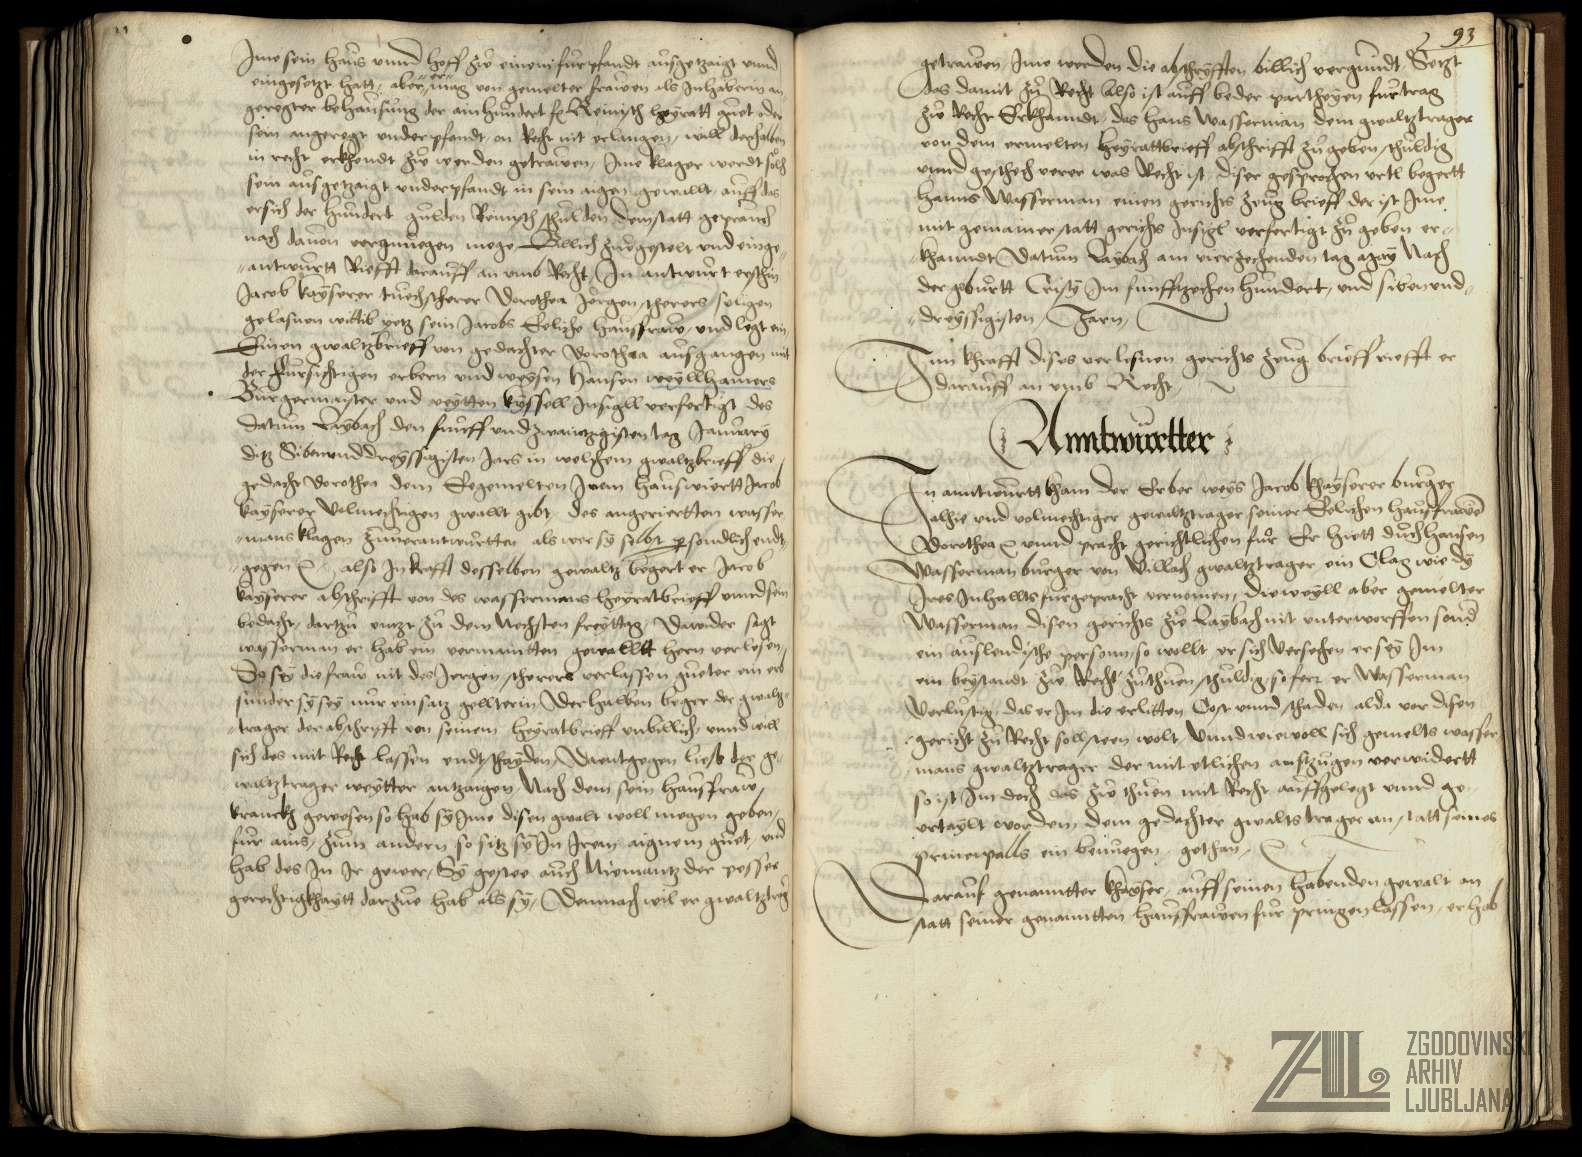 Ime sein haus unnd hoff zw einem furpfandt ausgetzaigt unnd
eingesetzt hatt, aber er mag von gemelter frawen als Inhaberin an„
geregter behausung der ainhundert fl Reinisch heyratt guet oder
sein angeregt underpfandt on Recht nit erlangen, will derhalben
in recht erkhendt zw werden getrawen, Ime klager werdt solch
sein ausgetzaigt underpfandt in sein aigen gewallt, auff das
er sich der hundert gulden Reinisch schulden demstatt geprauch
nach davon vergnuegen muge Billich zuegestelt und einge„
„antwurtt Riefft darauff an umb Recht, In antwurt erschin
Jacob kayserer tuechscherer Dorothea Jorgen scherers seligen
gelasnen wittib yetz sein Jacobs Eeliche hausfraw, und legt ein
Einen gwaltzbrieff von gedachter Dorothea ausgangen mit
der fursichtigen erbern und weysen Hansen weyllhamers
Burgermaister und veytten kyssell Insigll verfertigt des
datum Laybach den funff und zwaintzigisten tag January
ditz Sibenunddreyssigisten Jars in welchem gwaltzbrieff die
gedacht Dorothea dem Eegemelten Irem hauswiertt Jacob
kayserer Volmechtigen gwallt gibt des angerierten wasser
„mans klagen zuverantwurtten als wer sy selbt persondlich endt„
„gegen also In krafft desselben gewaltz begert er Jacob
kayserer abschrifft von des wassermans heyratbrieff unnd sein
bedacht, dartzu untzt zu dem Nechsten freyttag, Dawider sagt
wasserman er hab ein vermainten gewalltt hern verlesen,
So sey die fraw nit des Jorgen scherers verlassen gueter ein erb
sunder sy sey nur ein satz gellterin Derhalben beger der gwaltz„
„trager der abschrifft von seinem heyratbrieff unbillich, unnd will
sich des mit Recht lassen endtschayden, Daentgegen liess der ge„
„waltztrager weytter antzaigen Nach dem sein hausfraw
kranckh gewesen so hab sy Ime disen gwalt woll mogen geben,
fur ains, Zum andern so sitz sy In Irem aignem guet, und
hab des In Ir gewer, Sy gestee auch Niemantz der pesser
gerechtigkhaytt darzue hab als sy, Demnach wil er gwaltztrager
93
getrawen, Ime werden die abschryfften billich vergundt, Setzt
das damit zu Recht Also ist auff beder partheyen furtrag
zw Recht Erkhanndt, das hans Wasserman dem gwaltztrager
von dem ermelten heyrattbrieff abschrifft zu geben schuldig
unnd geschech verer was Recht ist, diser gesprochen urtl begertt
hanns Wasserman einen gerichts zeug brieff der ist Ime
mit gemainer statt gerichts Insigl verfertigt zu geben er„
„khanndt Datum Laybach am vierzechenden tag Nach
der geburtt Cristy Im funfftzechenhundert, und siben und„
„dreyssigisten, Jarn,
Inn khrafft dises verlesnen gerichts zeug brieff riefft er
darauff an umb Recht,
Anntwurtter
In anntwurtt kham der Erber weys Jacob khayserer burger
alhie und volmechtiger gewaltztrager seiner Eelichen hausfrawen
Dorothea unnd pracht gerichtlichen fur Er hiett durch hansen
Wasserman burger von Villach gwaltztrager ein Clag wie dy
Ires Inhallts furgepracht vernomen, dieweyll aber gemelter
Wasserman disen gerichts zw Laybach nit unterworffen sond
ein auslendische person, so wollt er sich Versechen er sey Im
ein beystandt zw Recht zuthuen schuldig, so ferr er Wasserman
verlustig, das er Im die erlitten Cost unnd schaden alda vor disen
gericht zu Recht sollsteen wolt, Unnd wiewoll sich gemelts wasser
mans gwaltztrager der mit etlichen ausszugen verwidertt
so ist Im doch das zw thuen mit Recht auffgelegt unnd ge„
urtaylt worden, dem gedachter gwaltstrager an statt seines
principalls ein benuegen gethan,
Darauf genanntter khayser, auff seinen habenden gewalt an
statt seiner genanntten hausfrawen fur pringen lassen, er hab
ZAL
ZGODOVINSKI
ARHIV
LJUBLJANA